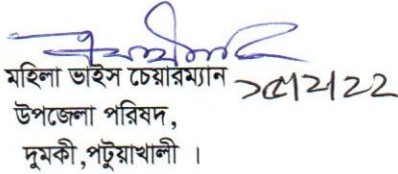 মহিলা ভাইস চেয়ারম্যান ১৫/২/২২
উপজেলা পরিষদ,
দুমকী,পটুয়াখালী ।